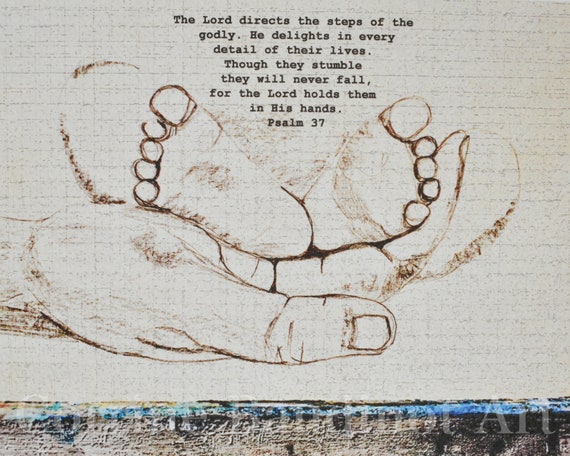 The Lord directs the steps of the
godly. He delights in every
detail of their lives.
Though they stumble
they will never fall,
for the Lord holds them
in His hands.
Psalm 37
Art